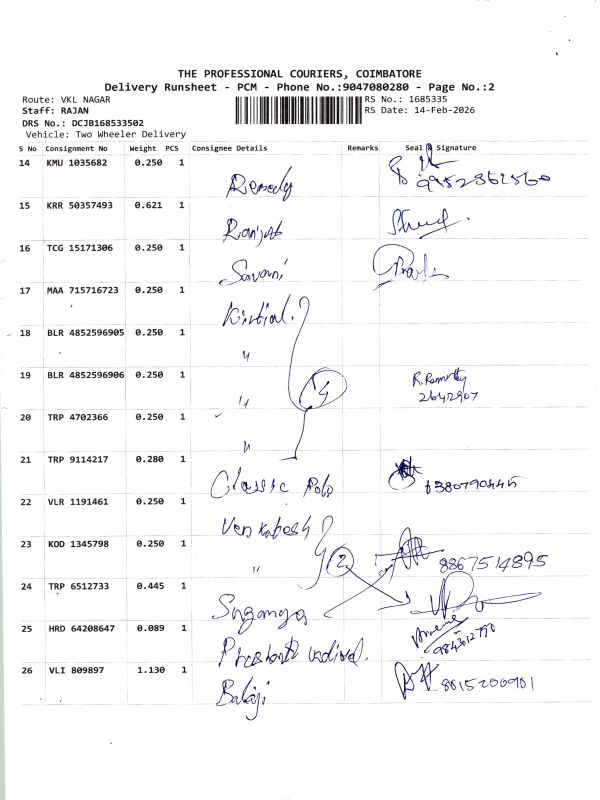 THE PROFESSIONAL COURIERS, COIMBATORE
Delivery Runsheet - PCM - Phone No.:9047080280 - Page No.:2
Route: VKL NAGAR
RS No.: 1685335
Staff: RAJAN
RS Date: 14-Feb-2026
DRS No.: DCJB168533502
Vehicle: Two Wheeler Delivery
S No Consignment No Weight PCS Consignee Details Remarks Seal & Signature
14 KMU 1035682 0.250 1 Remedy
15 KRR 50357493 0.621 1 Ranjit
16 TCG 15171306 0.250 1 Savani
17 MAA 715716723 0.250 1
18 BLR 4852596905 0.250 1 "
19 BLR 4852596906 0.250 1 " 4
20 TRP 4702366 0.250 1 "
21 TRP 9114217 0.280 1 Classic Polo
22 VLR 1191461 0.250 1 Venkatesh
23 KOD 1345798 0.250 1 " 2 8867514895
24 TRP 6512733 0.445 1 Suganya
25 HRD 64208647 0.089 1
26 VLI 809897 1.130 1 Balaji 8015200901